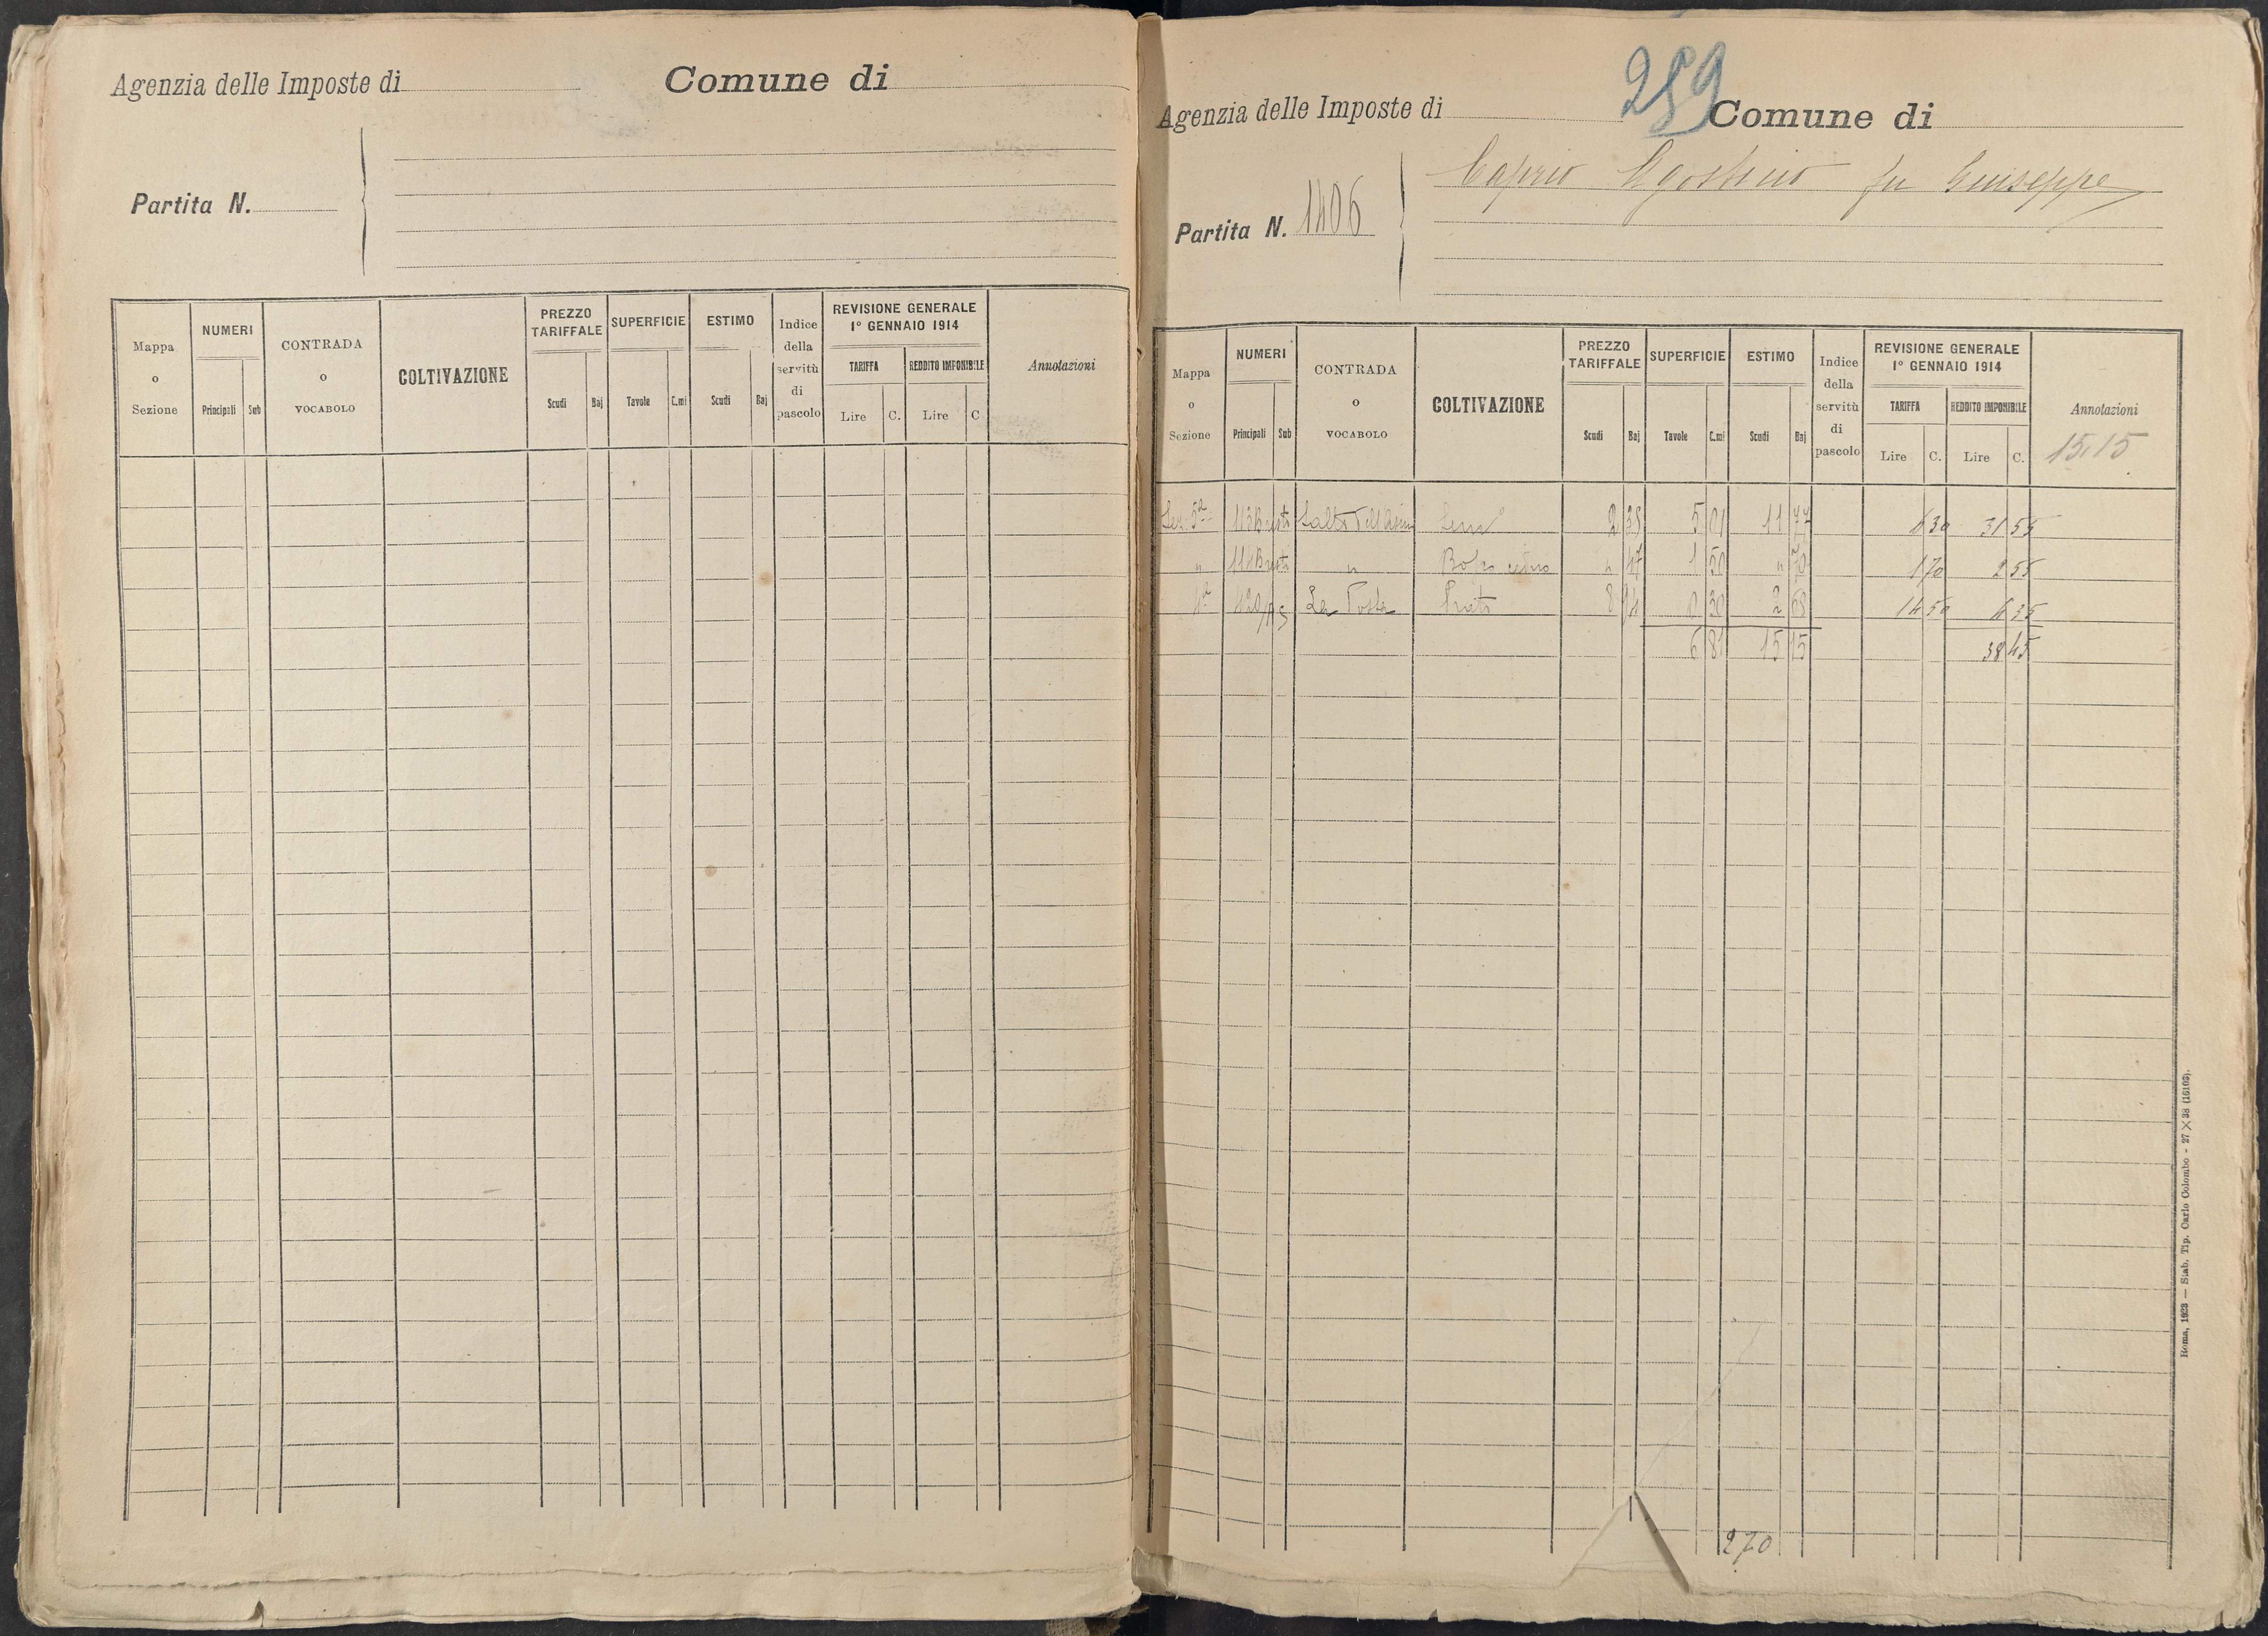 Agenzia delle Imposte di
Comune di
Partita N.
Mappa o Sezione
NUMERI
Principali
Sub
CONTRADA o VOCABOLO
COLTIVAZIONE
PREZZO TARIFFALE
Scudi
Baj
SUPERFICIE
Tavole
C.mi
ESTIMO
Scudi
Baj
Indice della servitù di pascolo
REVISIONE GENERALE 1º GENNAIO 1914
TARIFFA
Lire
C.
REDDITO IMPONIBILE
Lire
C
Annotazioni
259
Agenzia delle Imposte di
Comune di
Caprio Agostino fu Giuseppe
Partita N. 1406
Mappa o Sezione
NUMERI
Principali
Sub
CONTRADA o VOCABOLO
COLTIVAZIONE
PREZZO TARIFFALE
Scudi
Baj
SUPERFICIE
Tavole
C.mi
ESTIMO
Scudi
Baj
Indice della servitù di pascolo
REVISIONE GENERALE 1º GENNAIO 1914
TARIFFA
Lire
C.
REDDITO IMPONIBILE
Lire
C.
Annotazioni
15,15
Sez. 5ª 2 35 5 01 11 77 6 30 31 55
" " " 47 1 50 " 70 1 70 2 55
La Prato 8 94 0 30 2 68 14 50 4 35
6 81 15 15 38 45
270
Roma, 1923 — Stab. Tip. Carlo Colombo - 27 × 38 (16103).